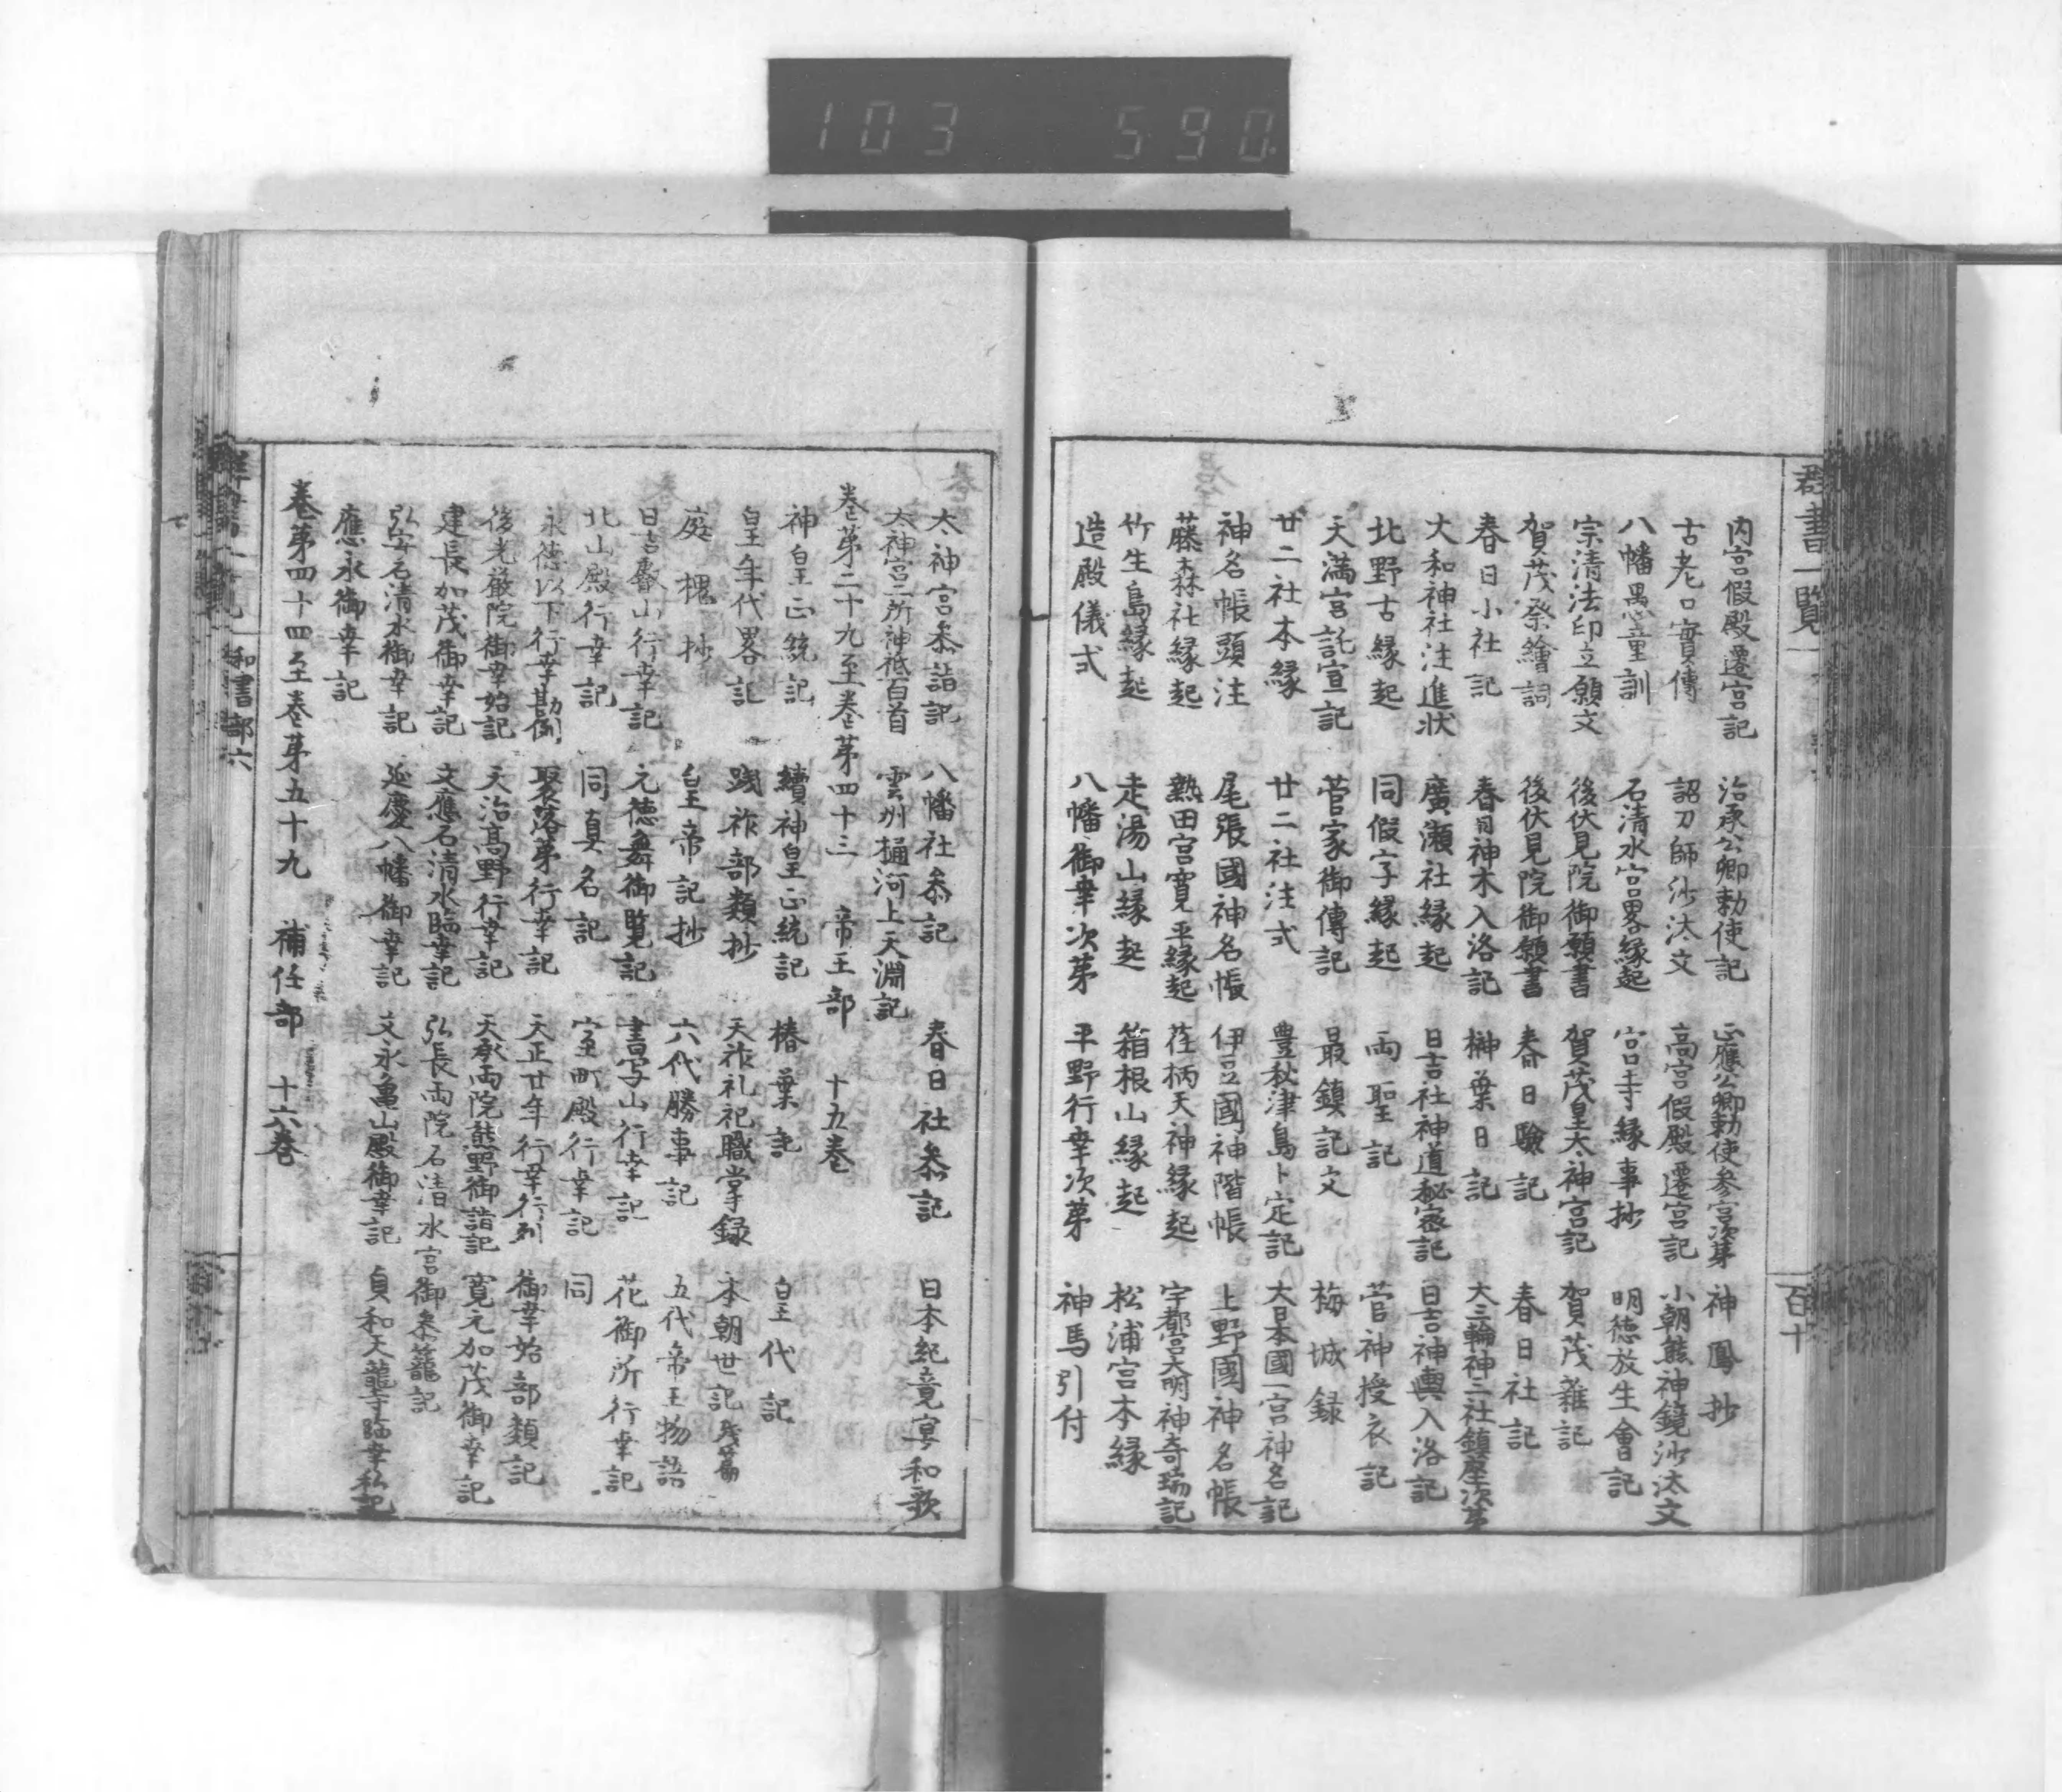 103 590
群書一覧
百十
内宮假殿遷宮記 治承公卿勅使記 正應公卿勅使参宮次第 神鳳抄
古老口實傳 詔刀師沙汰文 高宮假殿遷宮記 小朝熊神鏡沙汰文
八幡愚童訓 石清水宮畧縁起 宮寺縁事抄 明徳放生會記
宗清法印立願文 後伏見院御願書 賀茂皇太神宮記 賀茂雜記
賀茂祭繪詞 後伏見院御願書 春日驗記 春日社記
春日小社記 春日神木入洛記 榊葉日記 大三輪神三社鎮座次第
大和神社注進状 廣瀬社縁起 日吉社神道秘密記 日吉神輿入洛記
北野古縁起 同假字縁起 両聖記 菅神授衣記
天満宮託宣記 菅家御傳記 最鎮記文 梅城録
廿二社本縁 廿二社注式 豊秋津島卜定記 大日本國一宮神名記
神名帳頭注 尾張國神名帳 伊豆國神階帳 上野國神名帳
藤森社縁起 熱田宮寛平縁起 荏柄天神縁起 宇都宮大明神奇瑞記
竹生島縁起 走湯山縁起 箱根山縁起 松浦宮本縁
造殿儀式 八幡御幸次第 平野行幸次第 神馬引付
太神宮参詣記 八幡社参記 春日社参記 日本紀竟宴和歌
太神宮二所神祇百首 雲州樋河上天淵記
巻第二十九至巻第四十三 帝王部 十五巻
神皇正統記 續神皇正統記 椿葉記 皇代記
皇年代畧記 践祚部類抄 天祚礼祀職掌録 本朝世記残篇
庭槐抄 皇帝記抄 六代勝事記 五代帝王物語
日吉叡山行幸記 元徳舞御覧記 書写山行幸記 花御所行幸記
北山殿行幸記 同真名記 室町殿行幸記 同
永徳以下行幸勘例 聚落第行幸記 天正廿年行幸行列 御幸始部類記
後光厳院御幸始記 天治高野行幸記 天承両院熊野御詣記 寛元加茂御幸記
建長加茂御幸記 文應石清水臨幸記 弘長両院石清水宮御参籠記
弘安石清水御幸記 延慶八幡御幸記 文永亀山殿御幸記 貞和天龍寺臨幸私記
應永御幸記
巻第四十四至巻第五十九 補任部 十六巻
和書部六